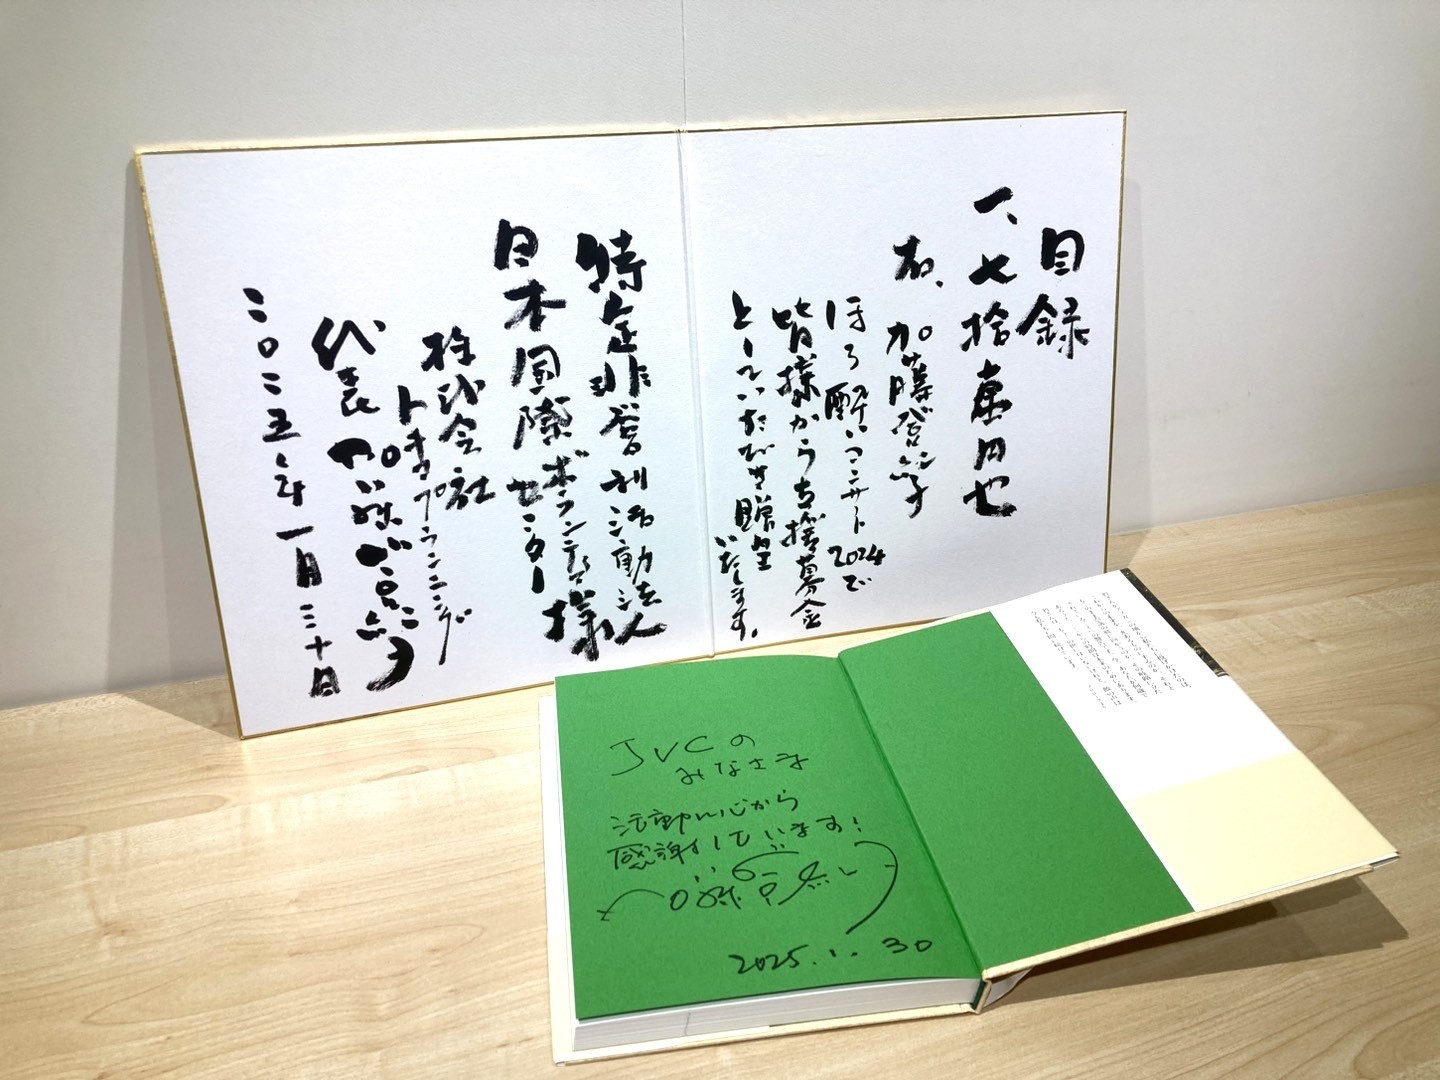 目録
一、七拾萬円也
右、加藤登紀子
ほろ酔いコンサート2024で
皆様からお預り募金
としていただき贈呈
いたします。
特定非営利活動法人
日本国際ボランティアセンター様
株式会社
トキコプランニング
代表 加藤登紀子
二〇二五年一月三十日
JVCの
みなさま
活動に心から
感謝しています!
加藤登紀子
2025.1.30